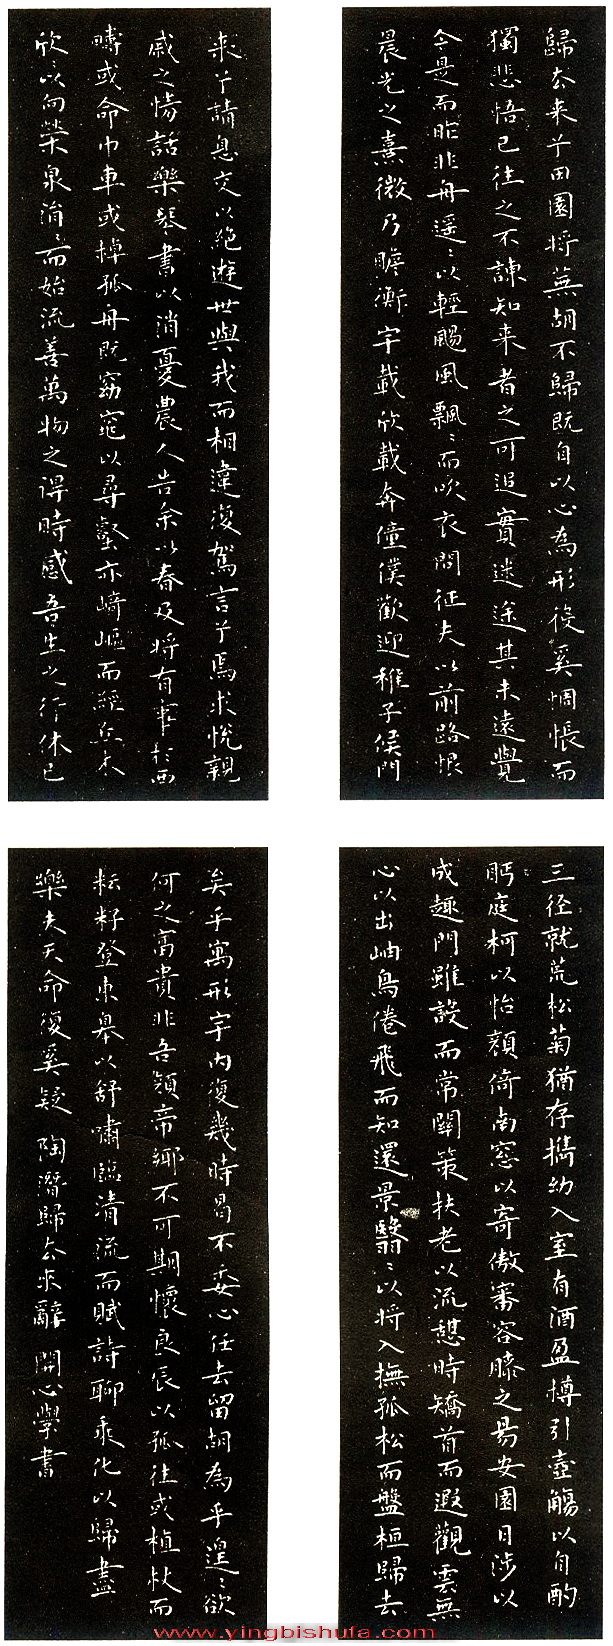 歸去来兮田園将蕪胡不歸既自以心為形役奚惆悵而
獨悲悟已往之不諫知来者之可追實迷途其未遠覺
今是而昨非舟遥〻以輕颺風飄〻而吹衣問征夫以前路恨
晨光之熹微乃瞻衡宇載欣載奔僮僕歡迎稚子候門
三径就荒松菊猶存攜幼入室有酒盈樽引壺觴以自酌
眄庭柯以怡顏倚南窓以寄傲審容膝之易安園日涉以
成趣門雖設而常關策扶老以流憩時矯首而遐觀雲無
心以出岫鳥倦飛而知還景翳〻以将入撫孤松而盤桓歸去
来兮請息交以絶遊世與我而相違復駕言兮焉求悅親
戚之情話樂琴書以消憂農人告余以春及将有事於西
疇或命巾車或棹孤舟既窈窕以尋壑亦崎嶇而經丘木
欣〻以向榮泉涓〻而始流善萬物之得時感吾生之行休已
矣乎寓形宇内復幾時曷不委心任去留胡為乎遑〻欲
何之富貴非吾願帝鄉不可期懷良辰以孤往或植杖而
耘耔登東皋以舒嘯臨清流而賦詩聊乘化以歸盡
樂夫天命復奚疑 陶潛歸去来辭 開心學書
www.yingbishufa.com